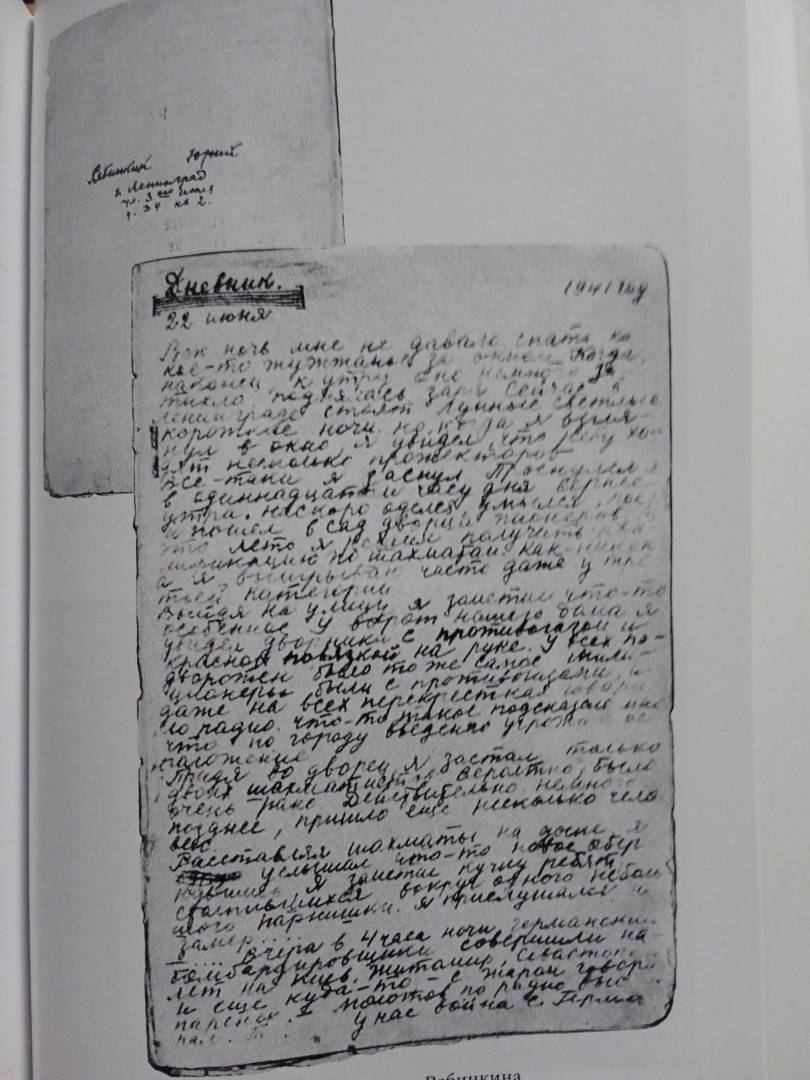 Рябинкин Юрий
г. Ленинград
ул. 3
д. 34 кв 2.
Дневник.
1941 год
22 июня
Всю ночь мне не давало спать ка
кое-то жужжанье за окном. Когда,
наконец, к утру оно немного за
тихло, поднялась заря. Сейчас в
Ленинграде стоят лунные светлые
короткие ночи. но когда я взгля-
нул в окно я увидел, что небу хо-
дят несколько прожекторов
все-таки я заснул Проснулся я
в одиннадцатом часу дня вернее
утра. наскоро оделся умылся
и пошел в сад дворца пионеров
это лето я решил получить ква
лификацию по шахматам. как-никак
а я выигрываю часто даже у тре
тьей категории
Выйдя на улицу я заметил что-то
особенное У ворот нашего дома я
увидел дворника с противогазом и
красной повязкой на руке. У всех по-
дворотен было то же самое Мили-
ционеры были с противогазами, и
даже на всех перекрестках говори
ло радио. что-то такое подсказало мне
что по городу введено угрожаемое
положение
Придя во дворец, я застал только
двоих шахматистов Вероятно, было
очень рано Действительно немного
позднее, пришло еще несколько чело
век
Расставляя шахматы на доске я
услышал что-то новое обер
нувшись, я заметил кучку ребят
столпившихся вокруг одного неболь
шого парнишки. Я прислушался и
замер....
- ... Вчера в 4 часа ночи германские
бомбардировщики совершили на-
лет на Киев, Житомир, Севастополь
и еще куда-то - с жаром говорил
паренек. - Молотов по радио выс
у нас война с Герма
Рябинкина